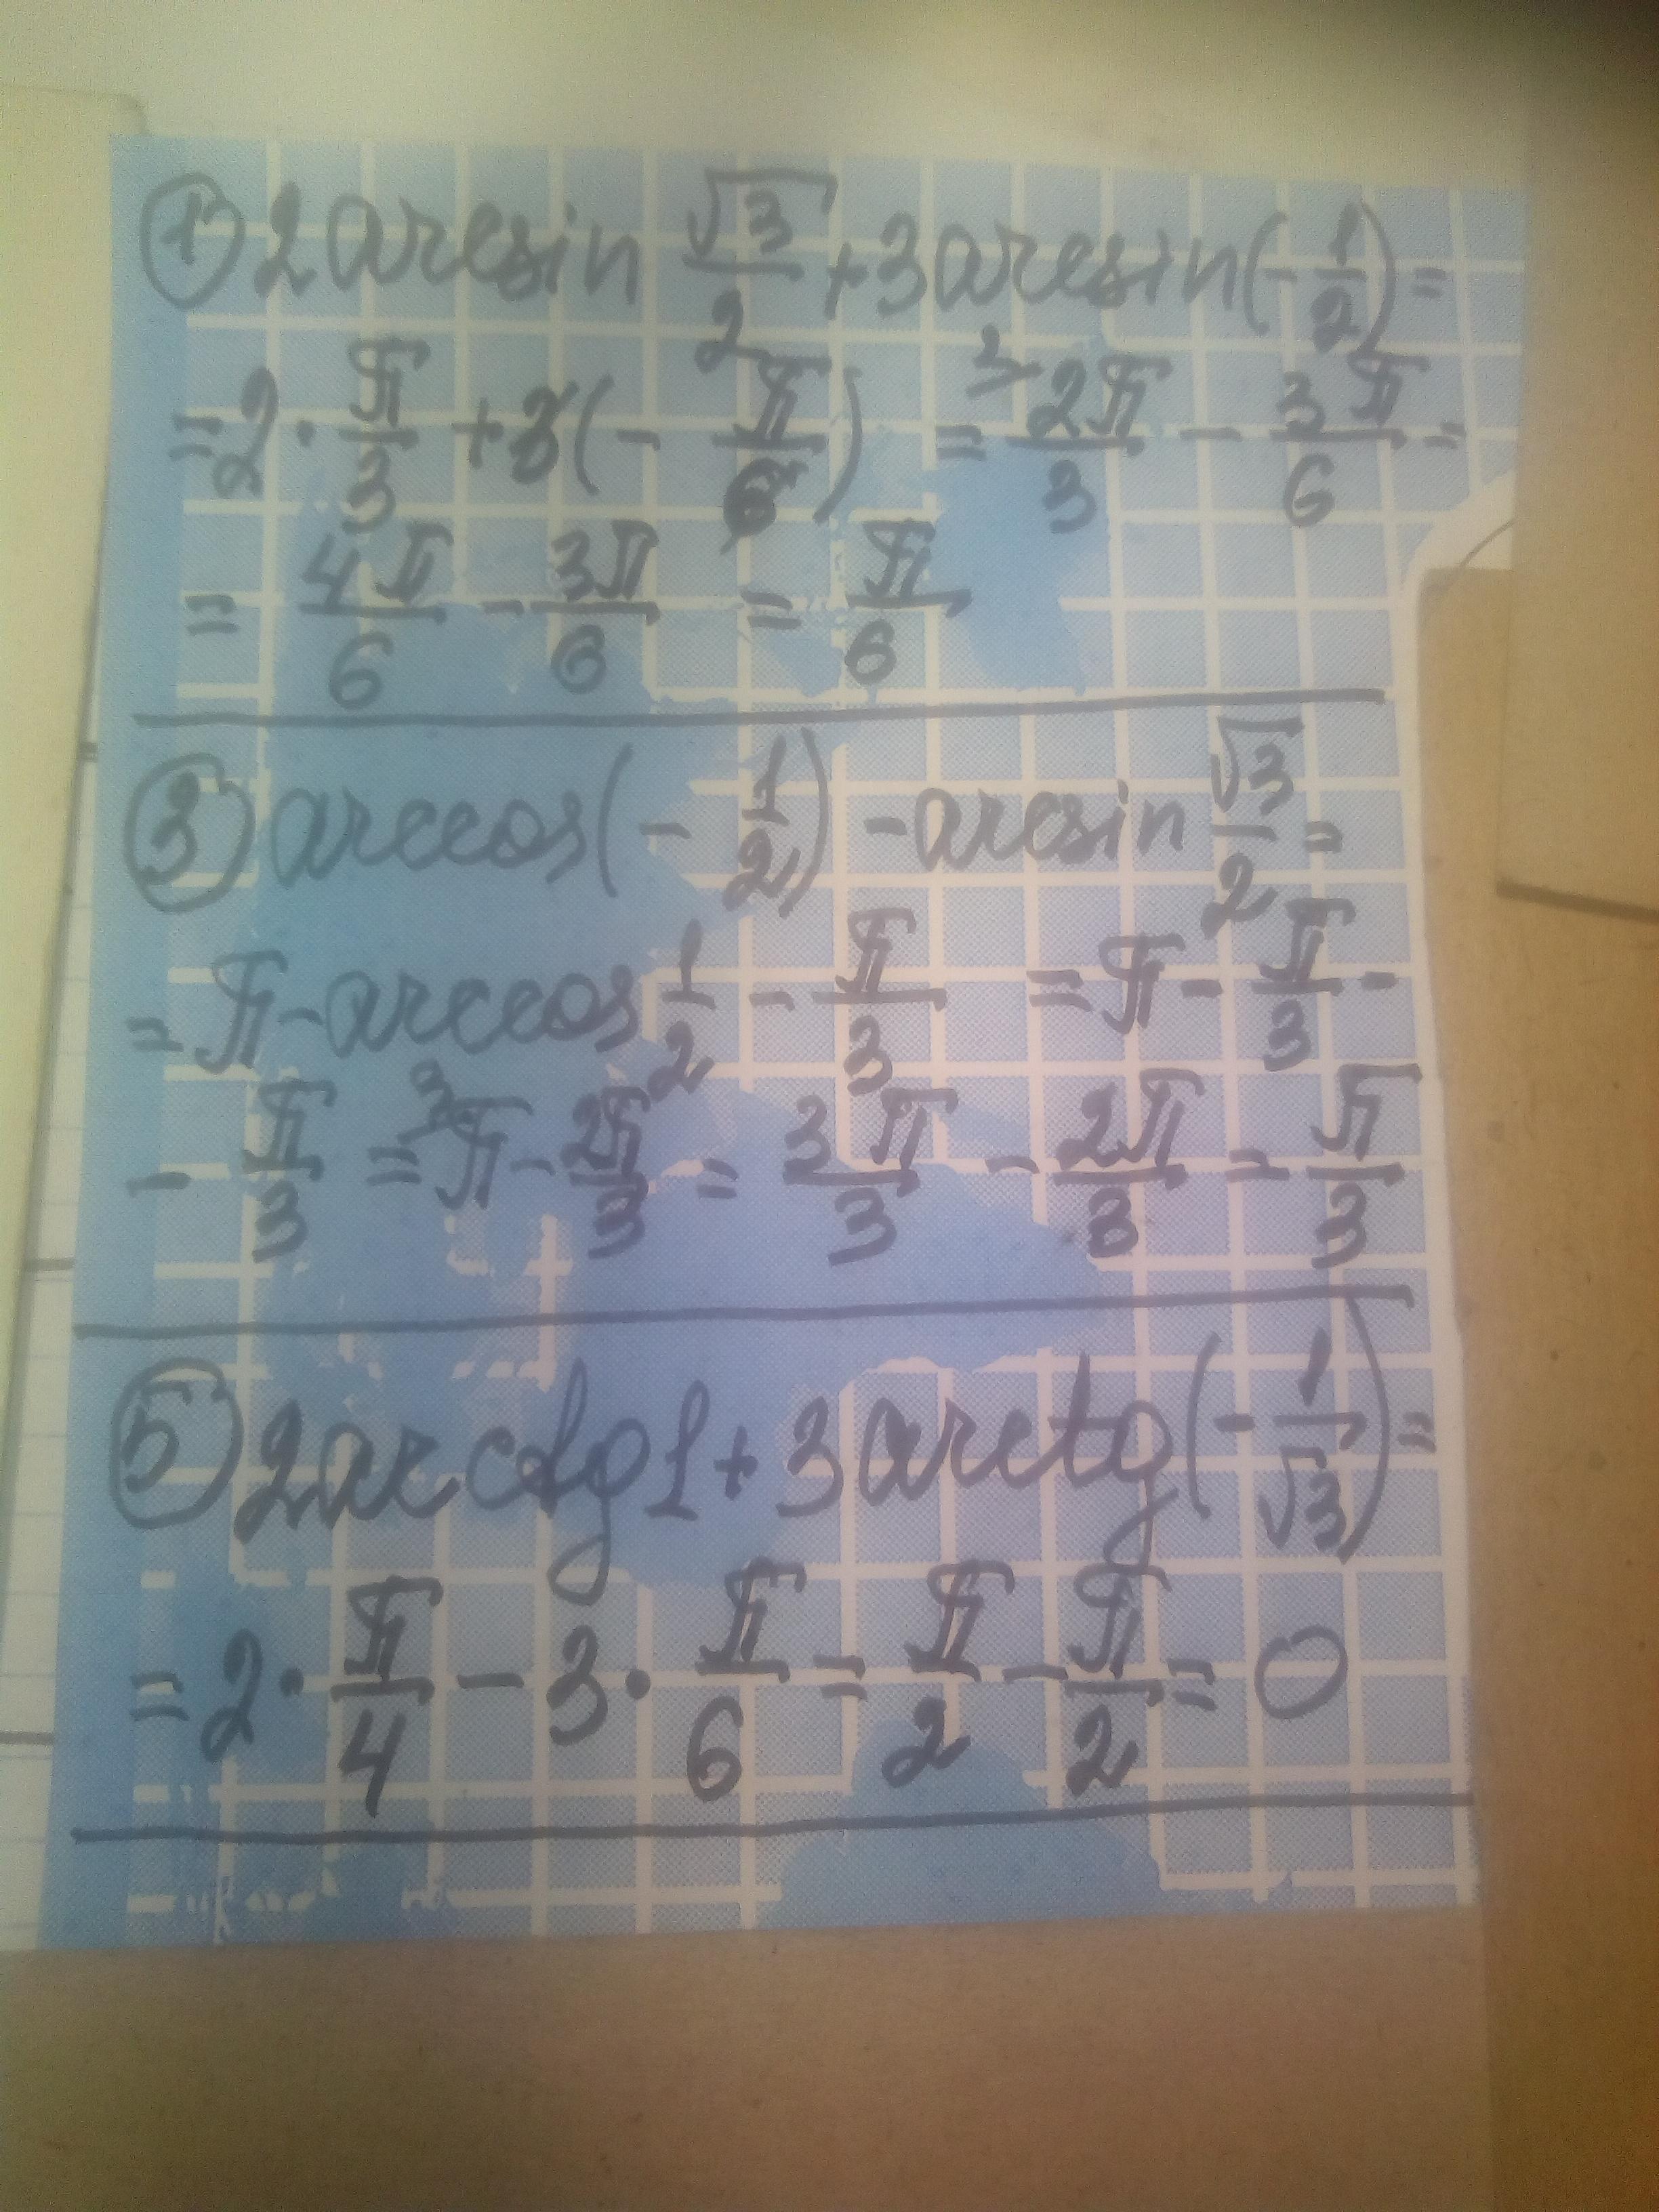 ① 2 arcsin √3/2 + 3 arcsin(-1/2) =
= 2 · π/3 + 3(-π/6) = 2π/3 - 3π/6 =
= 4π/6 - 3π/6 = π/6
③ arccos(-1/2) - arcsin √3/2 =
= π - arccos 1/2 - π/3 = π - π/3 -
- π/3 = ³π - 2π/3 = 3π/3 - 2π/3 = π/3
⑤ 2 arcctg 1 + 3 arctg(-1/√3) =
= 2 · π/4 - 3 · π/6 = π/2 - π/2 = 0